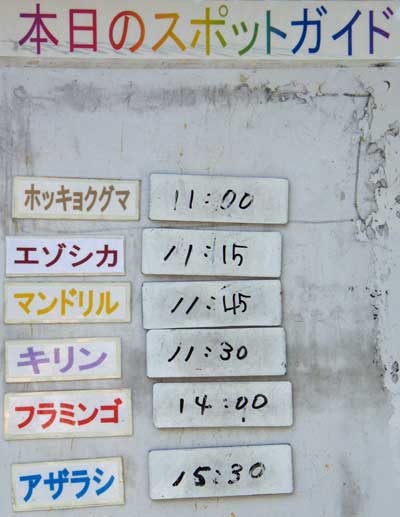 本日のスポットガイド
ホッキョクグマ 11:00
エゾシカ 11:15
マンドリル 11:45
キリン 11:30
フラミンゴ 14:00
アザラシ 15:30